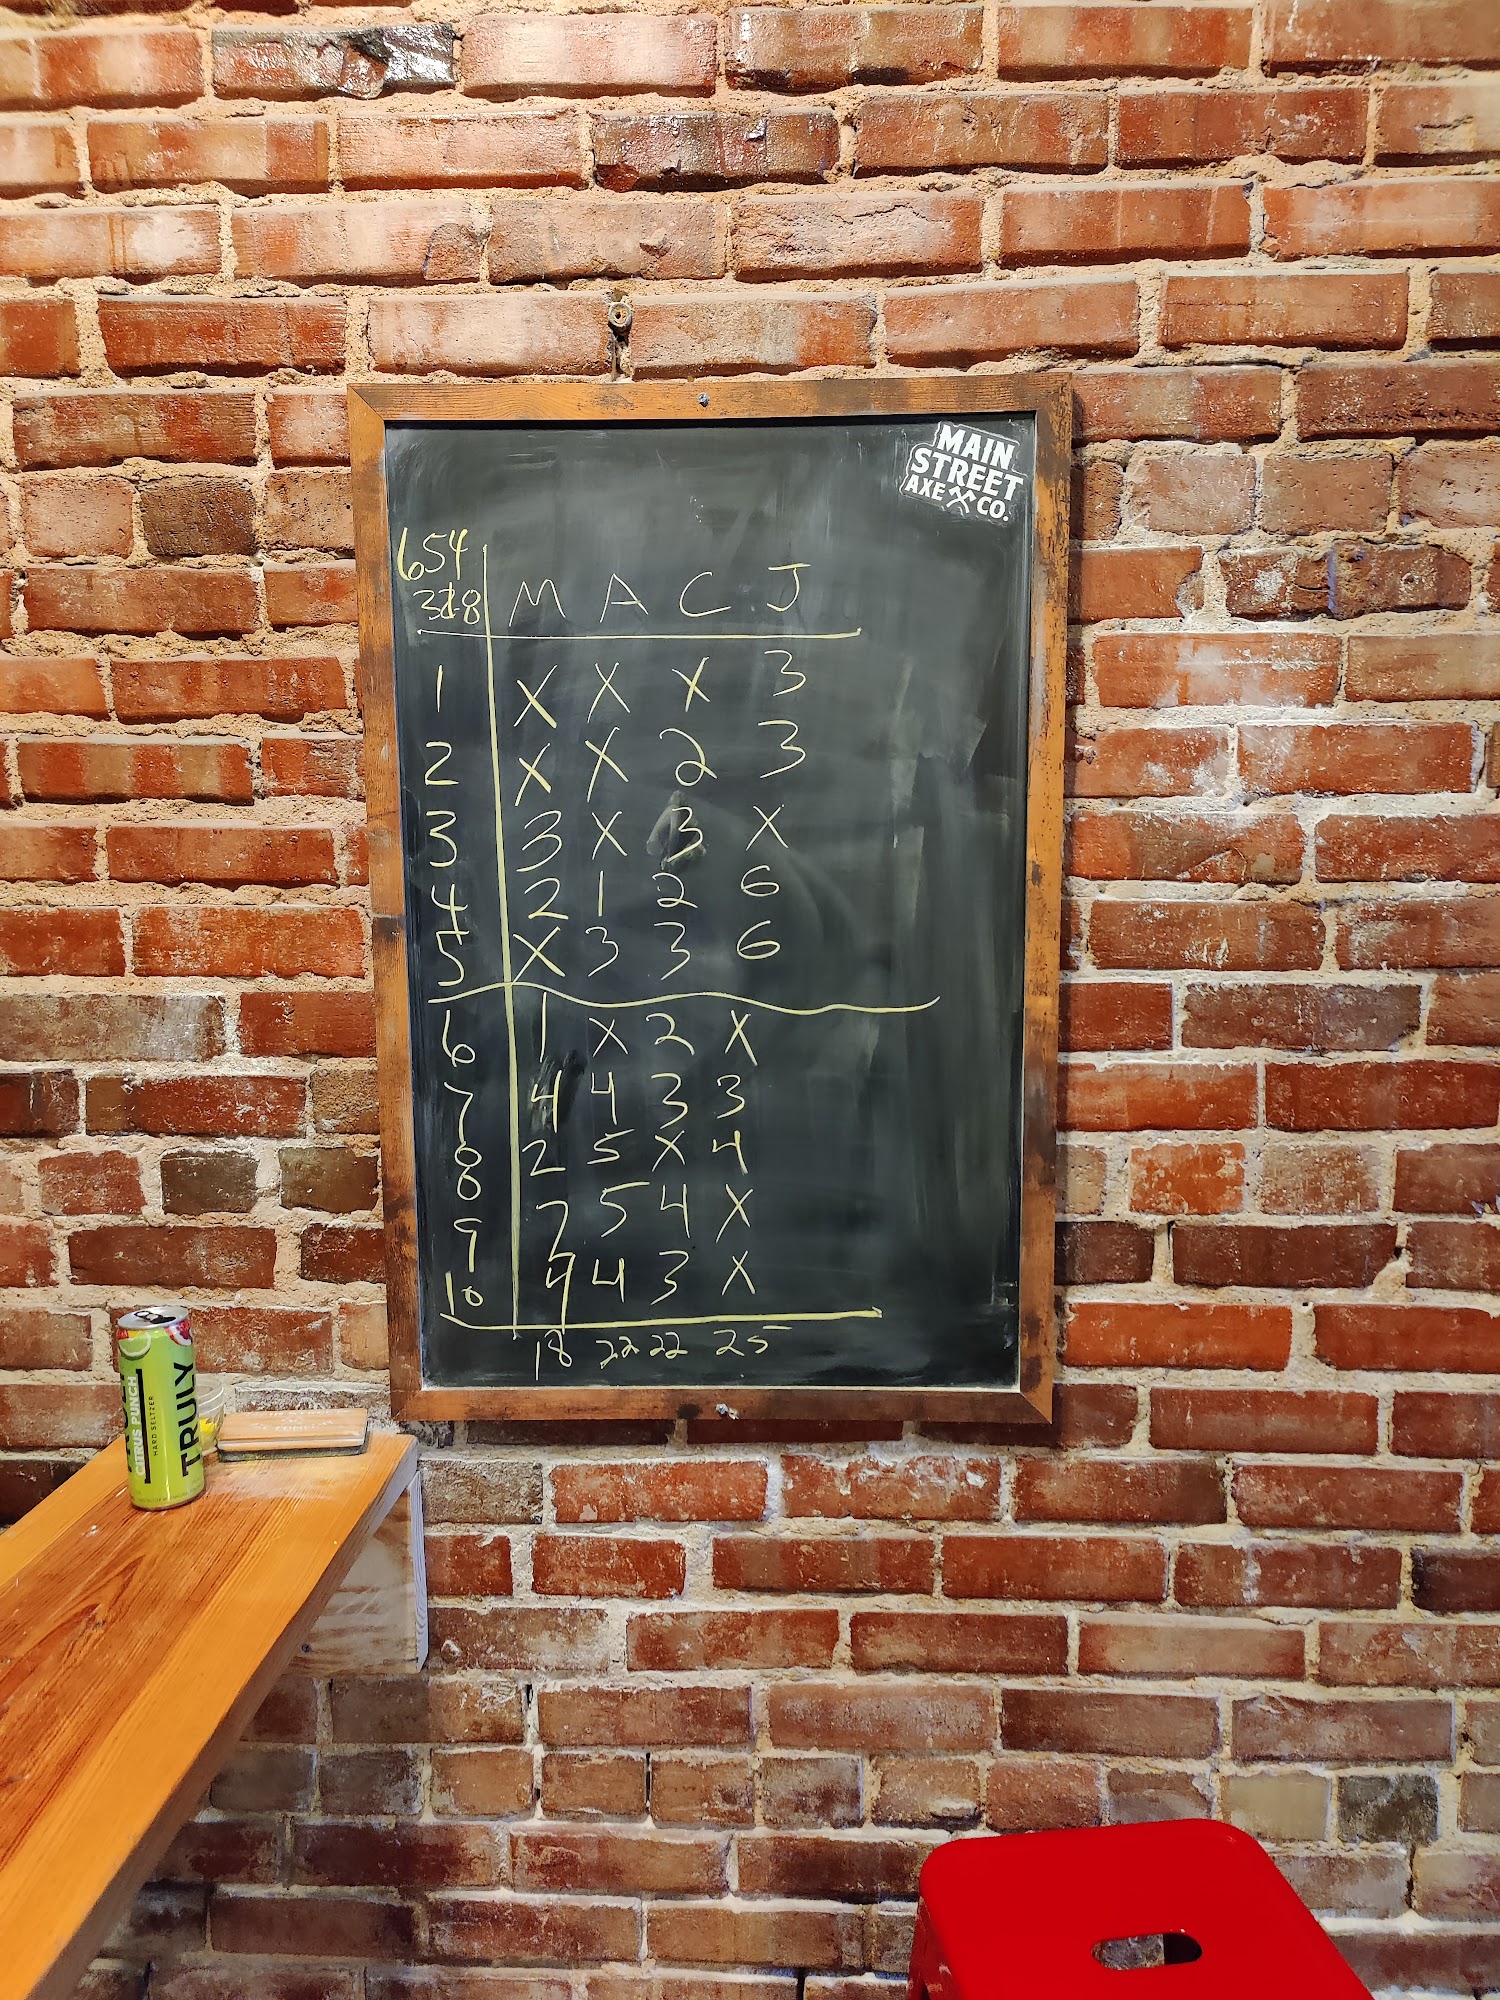 MAIN
STREET
AXE CO.
654
M A C J
1 X X X 3
2 X X 2 3
3 3 X 3 X
4 2 1 2 6
5 X 3 3 6
6 1 X 2 X
7 4 4 3 3
8 2 5 X 4
9 5 4 X
10 4 4 3 X
18 22 22 25
CITRUS PUNCH
HARD SELTZER
TRULY